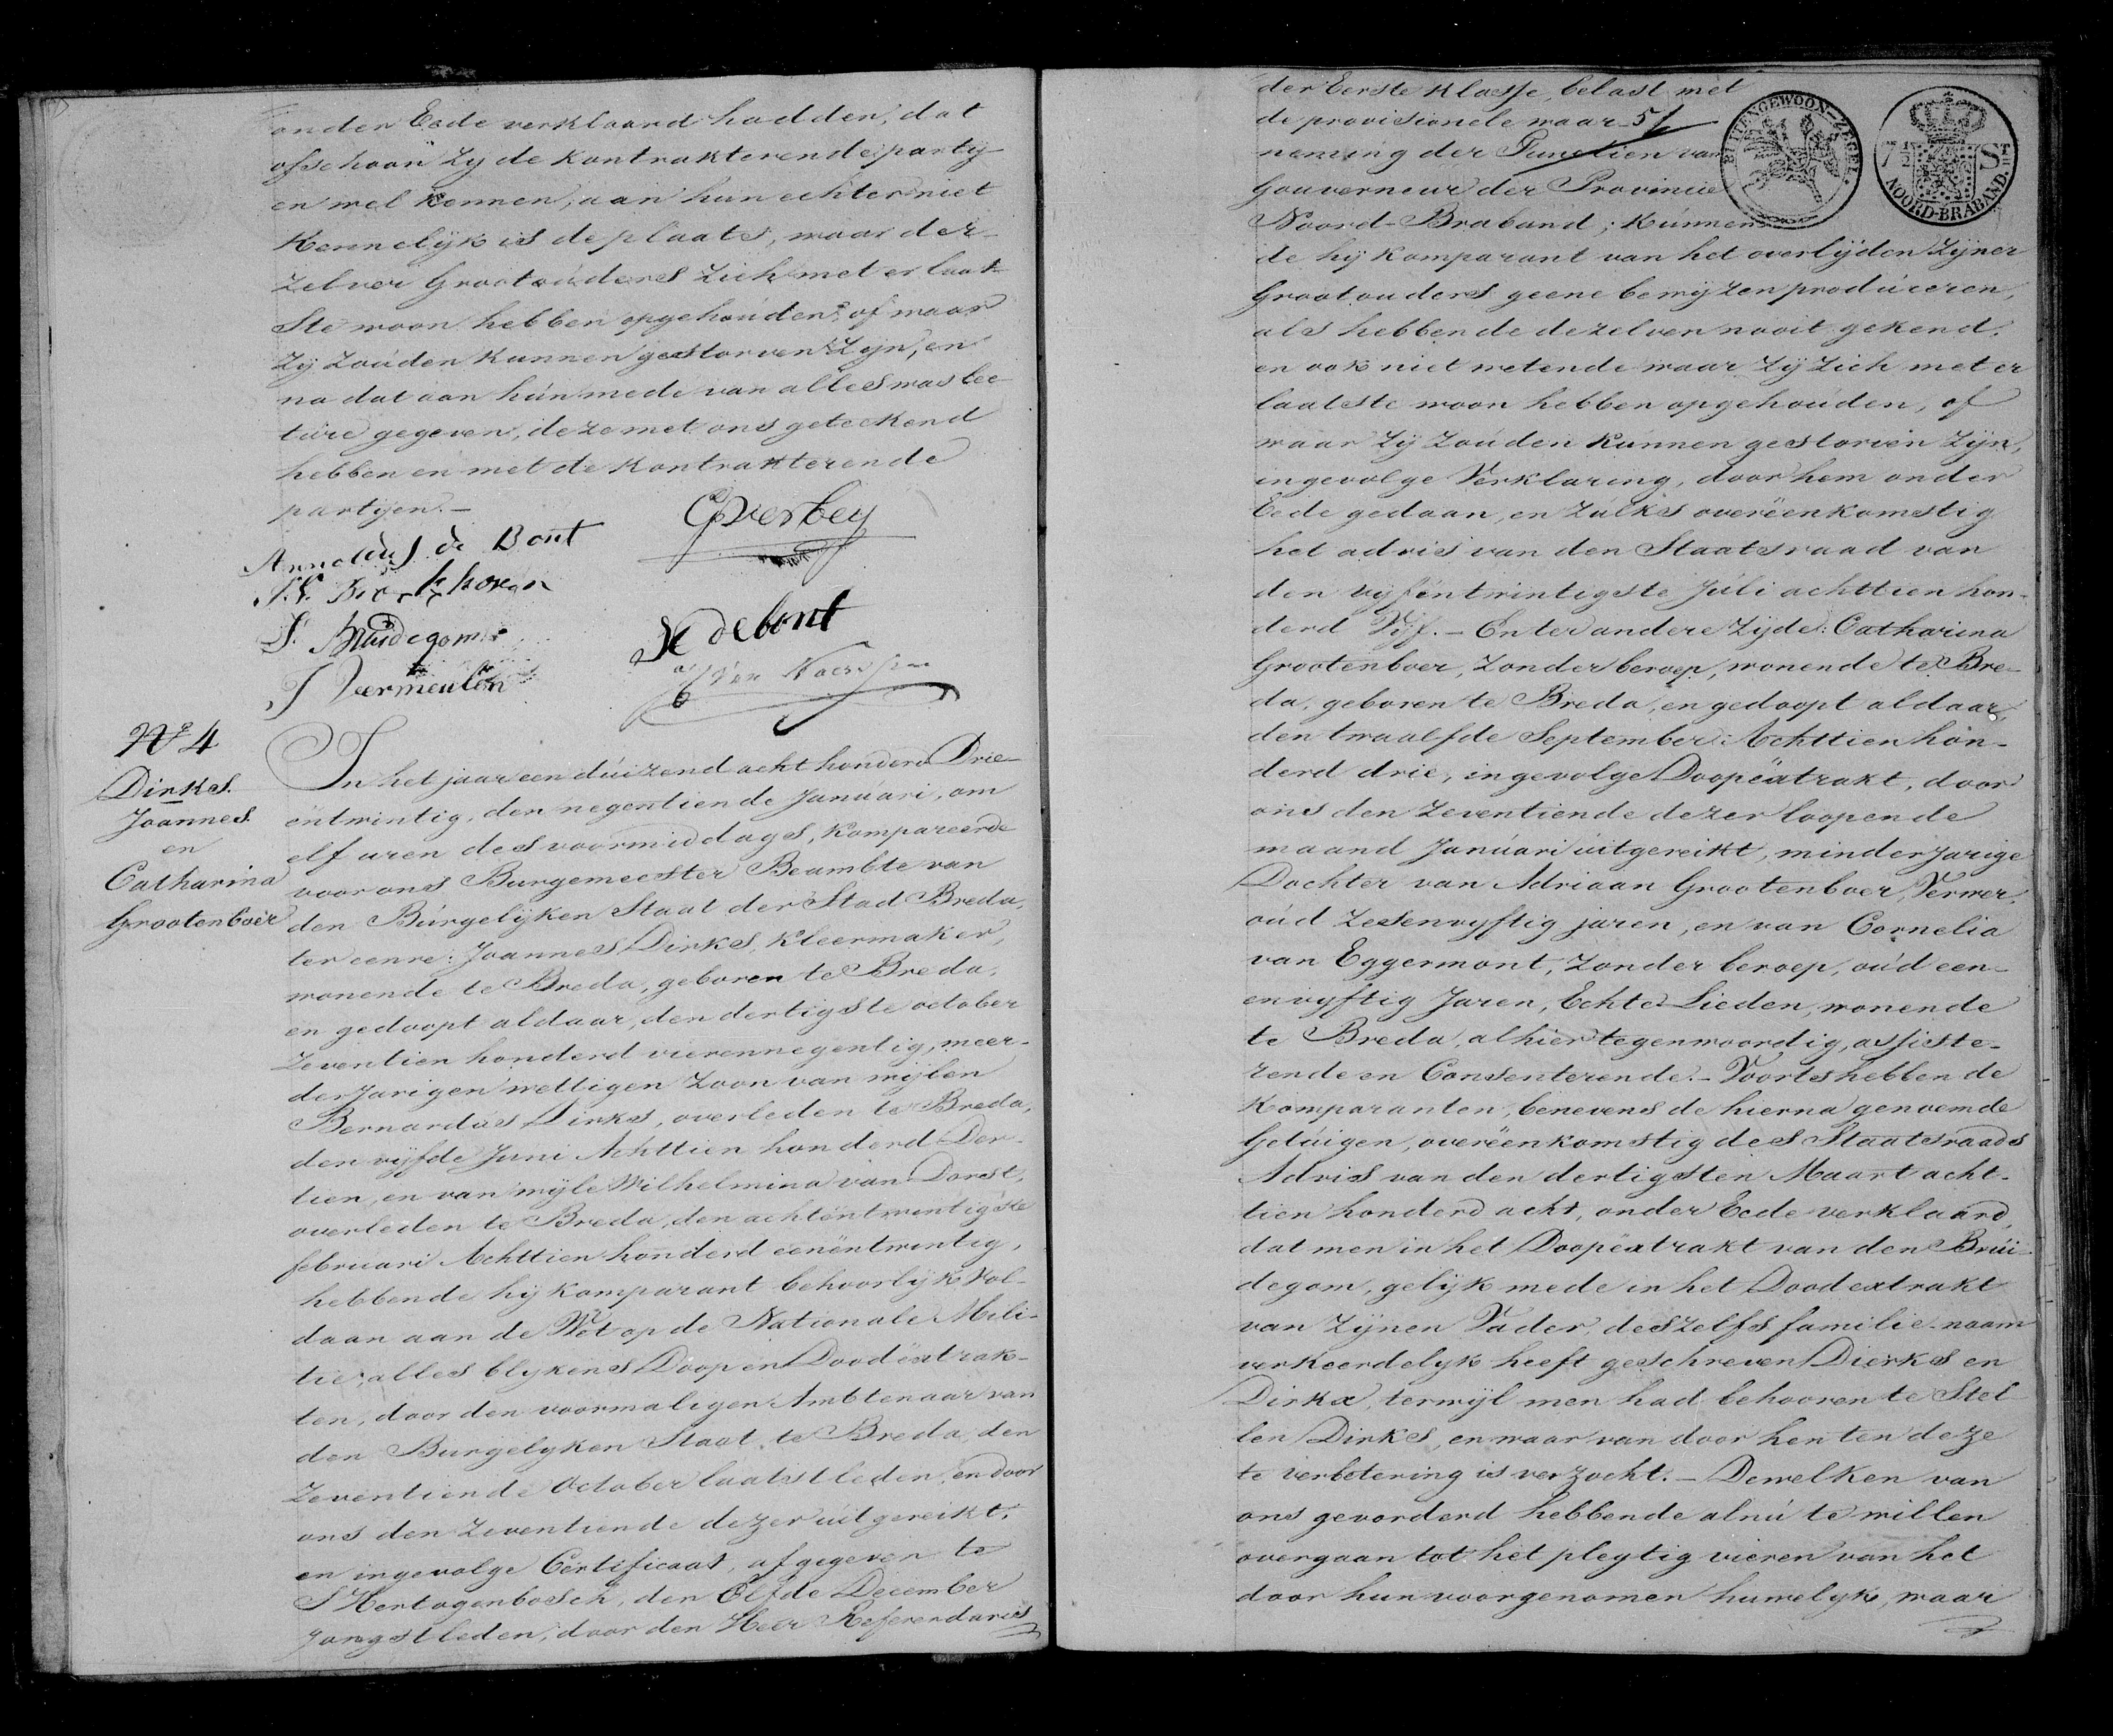 onder Eede verklaard hadden, dat
ofschoon zij de kontrakterende partij
en wel kennen, aan hun echter niet
Kennelijk is de plaats, waar der-
zelver Grootouders zich met er laat-
ste woon hebben opgehouden, of waar
zij zouden kunnen gestorven zijn, en
na dat aan hun mede van alles was lec-
ture gegeven, deze met ons geteekend
hebben en met de kontrakterende
partijen. -
GVerbey
Arnoldus de Bont
J Vermeulen
de bont
No 4
Dirks.
Joannes.
en
Catharina
Grootenboer
In het jaar een duizend acht honderd Drie-
entwintig, den negentiende Januari, om
elf uren des voormiddags, Kompareerde
voor ons Burgemeester Beambte van
den Burgelijken Staat der Stad Breda,
ter eenre: Joannes Dirks, Kleermaker,
wonende te Breda, geboren te Breda,
en gedoopt aldaar, den dertigste october
zeventien honderd vierennegentig, meer-
derjarigen wettigen zoon van wylen
Bernardus Dirks, overleden te Breda,
den vijfde Juni Achttien honderd Der-
tien, en van wijle Wilhelmina van Dorst,
overleden te Breda, den achtentwintigste
februari Achttien honderd eenëntwintig,
hebbende hij komparant behoorlijk vol-
daan aan de Wet op de Nationale Mili-
tie; alles blykens Doop en Doodëxtrak-
ten, door den voormaligen Ambtenaar van
den Burgelyken Staat te Breda, den
zeventiende October laatstleden, en door
ons den zeventiende dezer uitgereikt,
en ingevolge Certificaat, afgegeven te
S'Hertogenbosch, den Elfde December
jongstleden, door den Heer Referendaris
der Eerste Klasse, belast met
de provisioneele waar- 51
neming der Functien van
Gouverneur der Provincie
Noord-Braband; Kunnen-
BUITENGEWOON-ZEGEL.
7 1/2 ST
NOORD-BRABAND.
de hij Komparant van het overlijden zijner
Grootouders geene bewijzen produceren,
als hebbende dezelven nooit gekend,
en ook niet wetende waar zij zich met er
laatste woon hebben opgehouden, of
waar zij zouden kunnen gestorven zijn,
ingevolge Verklaring, door hem onder
Eede gedaan, en zulks overëenkomstig
het advis van den Staatsraad van
den vijfëntwintigste Juli achttien hon-
derd Vijf. - En ter andere zijde: Catharina
Grootenboer, zonder beroep, wonende te Bre-
da, geboren te Breda, en gedoopt aldaar,
den twaalfde September Achttien hon-
derd drie, ingevolge Doopëxtrakt, door
ons den zeventiende dezer loopende
maand Januari uitgereikt, minderjarige
Dochter van Adriaan Grootenboer, Verwer,
oud zesenvyftig jaren, en van Cornelia
van Eggermont, zonder beroep, oud een-
envyftig Jaren, Echte Lieden, wonende
te Breda, alhier tegenwoordig, assiste-
rende en Consenterende. - Voorts hebben de
Komparanten, benevens de hierna genoemde
Getuigen, overëenkomstig des Staatsraads
Advis van den dertigsten Maart acht-
tien honderd acht, onder Eede verklaard,
dat men in het Doopëxtrakt van den Brui-
degom, gelijk mede in het Doodextrakt
van zijnen Vader, deszelfs familie-naam
verkeerdelyk heeft geschreven Dierks en
Dirkx, terwijl men had behooren te Stel-
len Dirks, en waar van door hen ten deze
te verbetering is verzocht. - Dewelken van
ons gevorderd hebbende alnu te willen
overgaan tot het plegtig vieren van het
door hun voorgenomen huwelyk, waar